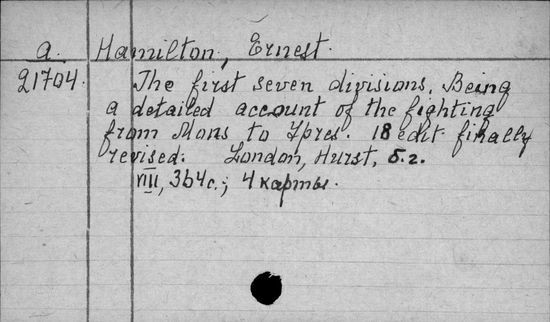 a. Hamilton, Ernest.
21704. The first seven divisions. Being
a detailed account of the fighting
from Mons to Ypres. 18 edit finally
revised. London, Hurst, б.г.
VIII, 364с.; 4 карты.